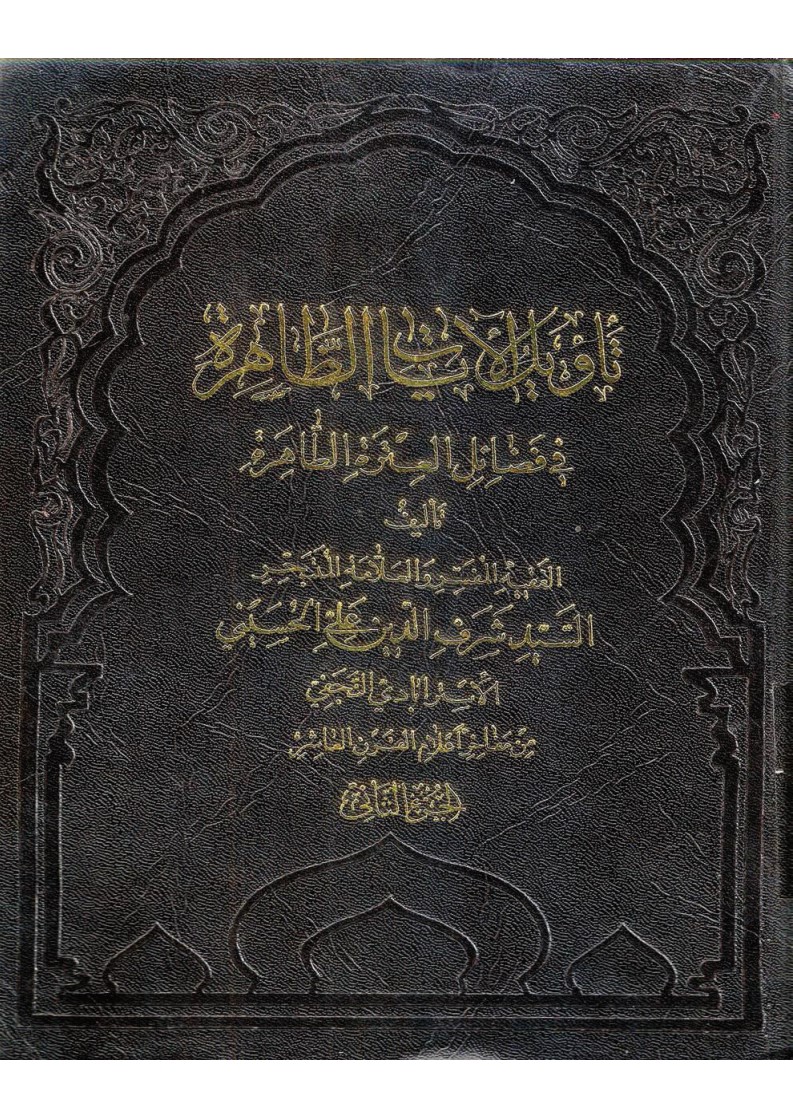 تأويل الآيات الظاهرة
في فضائل العترة الطاهرة
تأليف
الفقيه المفسر والعلامة المتبحر
السيد شرف الدين علي الحسيني
الاسترابادي النجفي
من مفاخر أعلام القرن العاشر
الجزء الثاني